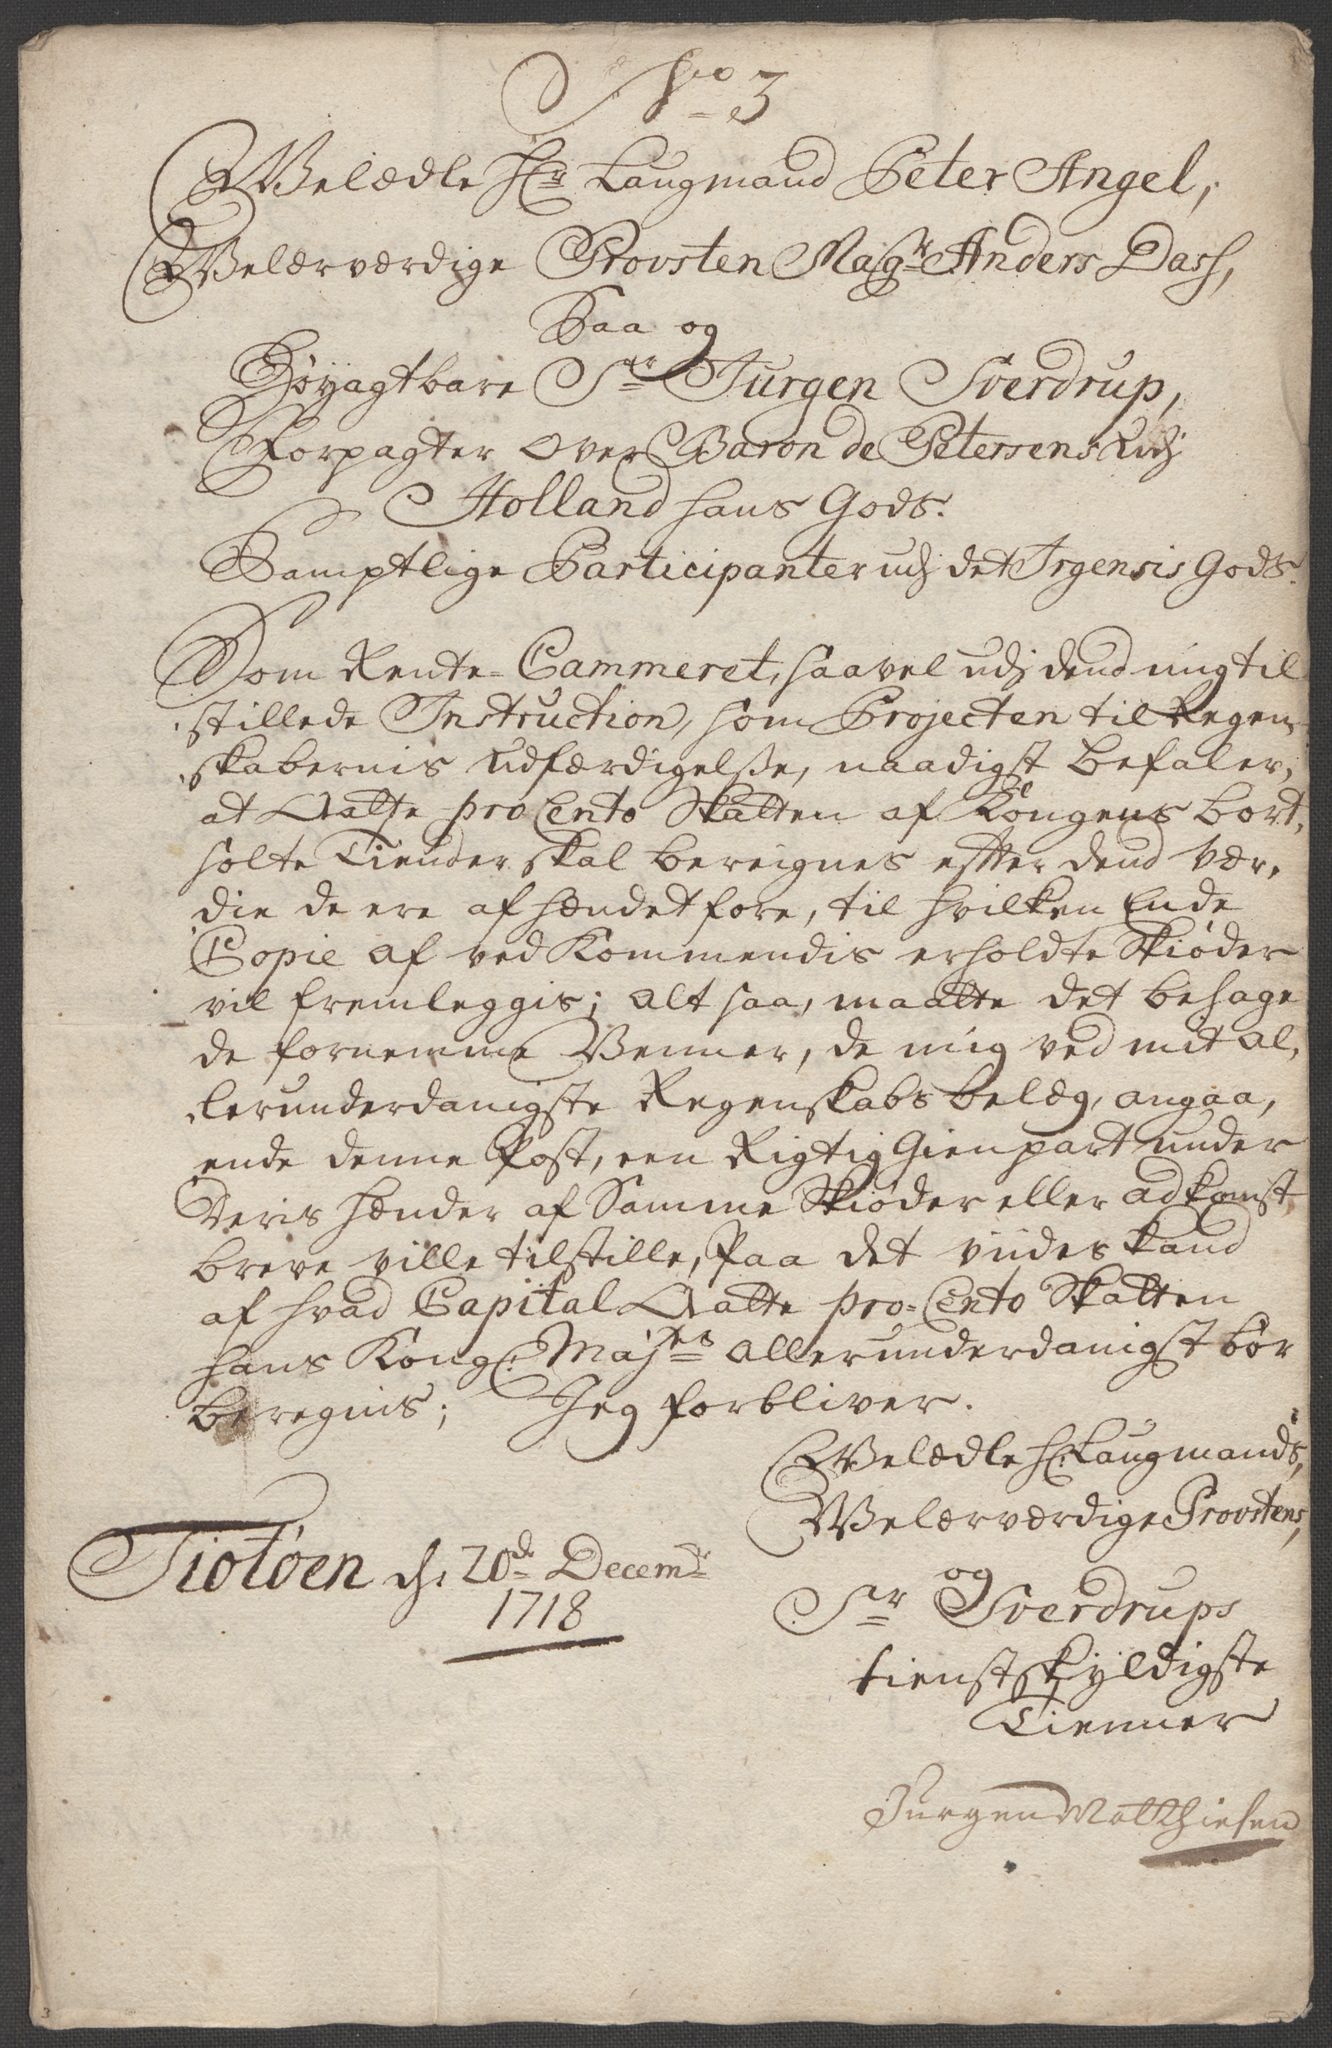 No 3
Velædle Hr Laugmand Peter Angel,
Velærværdige Provsten Magr Anders Dass,
Saa og
Høyagtbare Sr Jurgen Sverdrup,
Forpagter over Baron de Petersens udj
Holland hans Gods.
Samptlige Participanter udj det Irgensis Gods.
Som Rente-Cammeret, saavel udj dend mig til
stillede Instruction, som Projecten til Regen,
skabernis udfærdigelsse, naadigst befaler,
at Qvatte pro Cento Skatten af Kongens bort,
solte Tiender skal bereignes effter dend vær,
die de ere afhændet fore, til hvilken Ende
Copie af vedkommendis erholdte Skiøder
vil fremleggis; Alt saa, maatte det behage
de fornemme Venner, de mig ved mit al,
lerunderdanigste Regenskabs belæg, angaa,
ende denne Post, een Rigtig Gienpart under
Deris hænder af Samme Skiøder eller adkomst
breve ville tilstille, Paa det viides kand
af hvad Capital Qvatte pro-Cento Skatten
hans Kongl: Majtes allerunderdanigst bør
beregnis; Jeg forbliver.
Velædle Hr: Laugmands,
Velærværdige Provstens,
og
Sr Sverdrups
tienstskyldigste
Tienner
Tiotøen d: 20de Decembr
1718
Jurgen Matthiesen